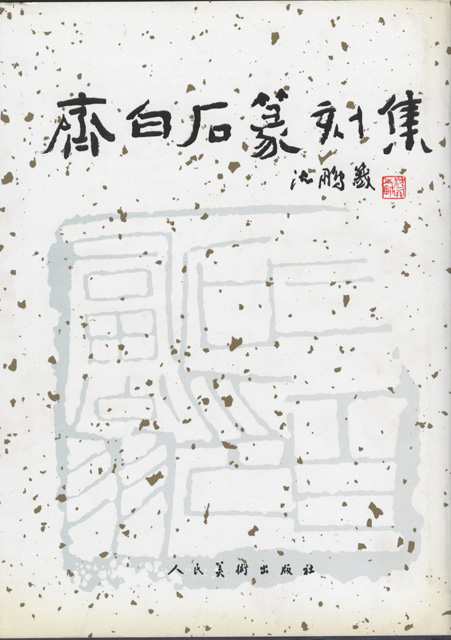 齊白石篆刻集
沈鵬
人民美術出版社